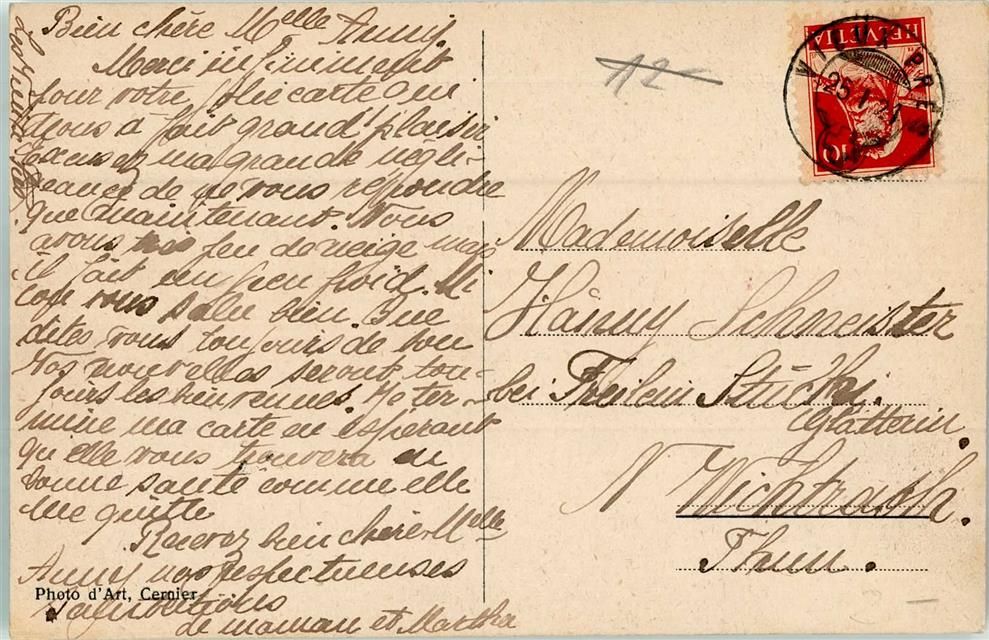 Bien chère Melle Anny
Merci infiniment
pour votre jolie carte qui
nous a fait grand plaisir
excusez ma grande négli-
geance de ne vous répondre
que maintenant. Nous
avons peu de neige mais
il fait un peu froid.
vous salu bien. Que
dites vous toujours de bon
Vos nouvelles seront tou-
jours les bienvenues. Je ter-
mine ma carte en espérant
qu'elle vous trouvera en
bonne santé comme elle
me quitte
Recevez bien chère Melle
Anny nos respectueuses
salutations
de maman et Martha
Photo d'Art, Cernier
12
HELVETIA
10
25.I.21
Mademoiselle
Hänny Schmeister
bei Freilein Stücki.
Glätterin.
N Wichtrach.
Thun.